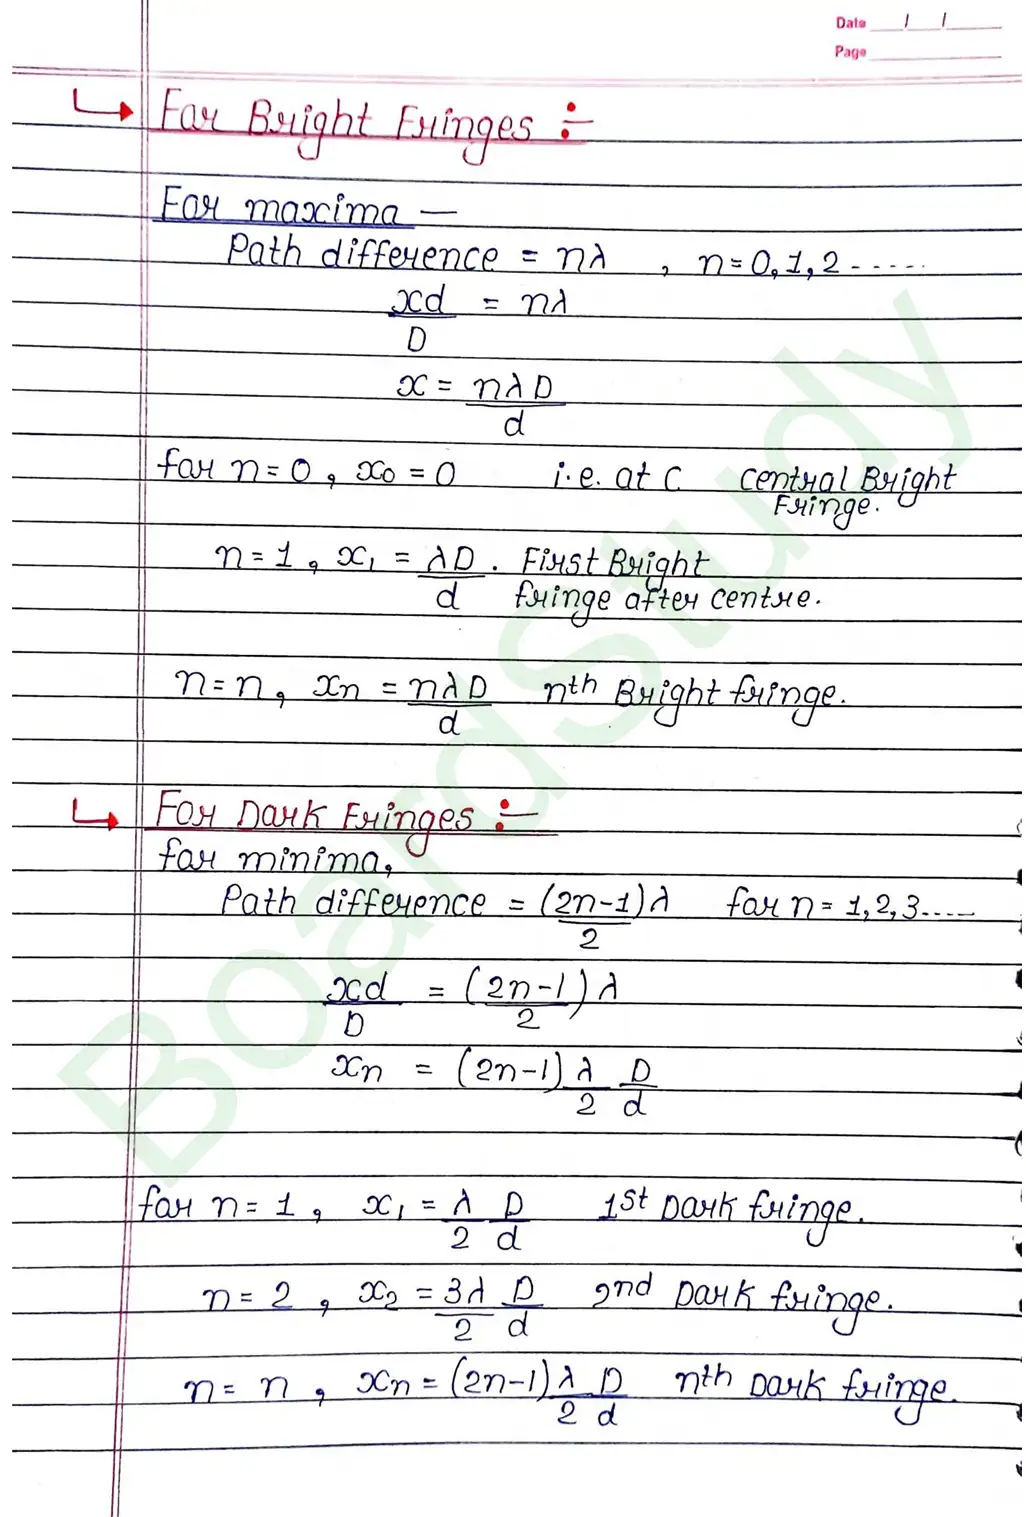 Date / /
Page
↳ For Bright Fringes ÷
For maxima —
Path difference = nλ , n=0,1,2-----
xd/D = nλ
x = nλD/d
for n=0, x₀=0 i.e. at C central Bright Fringe.
n=1, x₁ = λD/d . First Bright fringe after centre.
n=n, xn = nλD/d nth Bright fringe.
↳ For Dark Fringes ÷
for minima,
Path difference = (2n-1)λ/2 for n=1,2,3.....
xd/D = (2n-1/2)λ
xn = (2n-1) λ/2 D/d
for n=1, x₁ = λ/2 D/d 1st Dark fringe.
n=2, x₂ = 3λ/2 D/d 2nd Dark fringe.
n=n, xn = (2n-1) λ/2 D/d nth Dark fringe.
BoardStudy